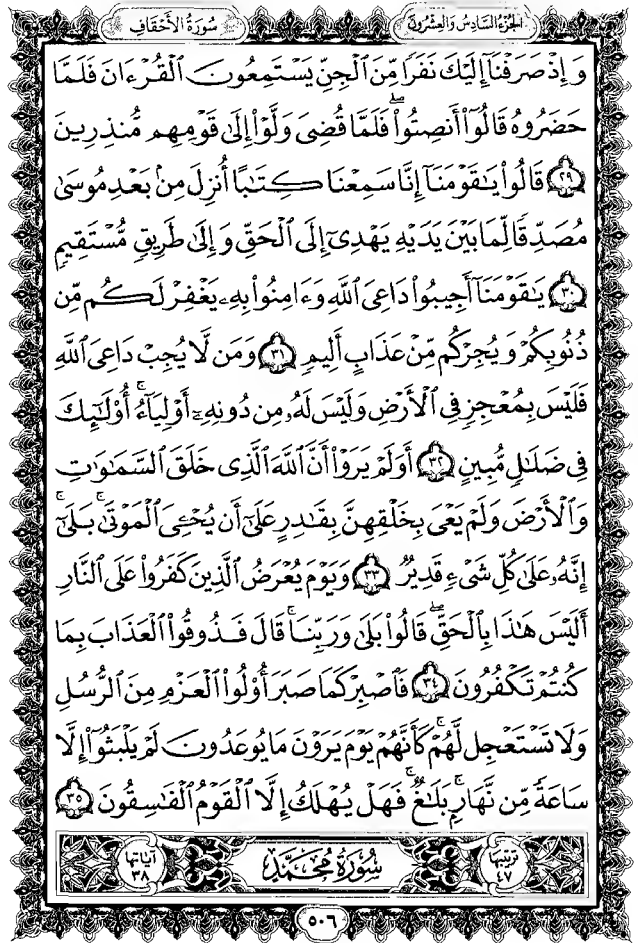 سُورَةُ الأَحْقَافِ
الجُزْءُ السَّادِسُ وَالعِشْرُونَ
وَإِذْ صَرَفْنَآ إِلَيْكَ نَفَرًا مِّنَ ٱلْجِنِّ يَسْتَمِعُونَ ٱلْقُرْءَانَ فَلَمَّا
حَضَرُوهُ قَالُوٓا۟ أَنصِتُوا۟ ۖ فَلَمَّا قُضِىَ وَلَّوْا۟ إِلَىٰ قَوْمِهِم مُّنذِرِينَ
٢٩ قَالُوا۟ يَـٰقَوْمَنَآ إِنَّا سَمِعْنَا كِتَـٰبًا أُنزِلَ مِنۢ بَعْدِ مُوسَىٰ
مُصَدِّقًا لِّمَا بَيْنَ يَدَيْهِ يَهْدِىٓ إِلَى ٱلْحَقِّ وَإِلَىٰ طَرِيقٍ مُّسْتَقِيمٍ
٣٠ يَـٰقَوْمَنَآ أَجِيبُوا۟ دَاعِىَ ٱللَّهِ وَءَامِنُوا۟ بِهِۦ يَغْفِرْ لَكُم مِّن
ذُنُوبِكُمْ وَيُجِرْكُم مِّنْ عَذَابٍ أَلِيمٍ ٣١ وَمَن لَّا يُجِبْ دَاعِىَ ٱللَّهِ
فَلَيْسَ بِمُعْجِزٍ فِى ٱلْأَرْضِ وَلَيْسَ لَهُۥ مِن دُونِهِۦٓ أَوْلِيَآءُ ۚ أُو۟لَـٰٓئِكَ
فِى ضَلَـٰلٍ مُّبِينٍ ٣٢ أَوَلَمْ يَرَوْا۟ أَنَّ ٱللَّهَ ٱلَّذِى خَلَقَ ٱلسَّمَـٰوَٰتِ
وَٱلْأَرْضَ وَلَمْ يَعْىَ بِخَلْقِهِنَّ بِقَـٰدِرٍ عَلَىٰٓ أَن يُحْـِۧىَ ٱلْمَوْتَىٰ ۚ بَلَىٰٓ
إِنَّهُۥ عَلَىٰ كُلِّ شَىْءٍ قَدِيرٌ ٣٣ وَيَوْمَ يُعْرَضُ ٱلَّذِينَ كَفَرُوا۟ عَلَى ٱلنَّارِ
أَلَيْسَ هَـٰذَا بِٱلْحَقِّ ۖ قَالُوا۟ بَلَىٰ وَرَبِّنَا ۚ قَالَ فَذُوقُوا۟ ٱلْعَذَابَ بِمَا
كُنتُمْ تَكْفُرُونَ ٣٤ فَٱصْبِرْ كَمَا صَبَرَ أُو۟لُوا۟ ٱلْعَزْمِ مِنَ ٱلرُّسُلِ
وَلَا تَسْتَعْجِل لَّهُمْ ۚ كَأَنَّهُمْ يَوْمَ يَرَوْنَ مَا يُوعَدُونَ لَمْ يَلْبَثُوٓا۟ إِلَّا
سَاعَةً مِّن نَّهَارٍۭ ۚ بَلَـٰغٌ ۚ فَهَلْ يُهْلَكُ إِلَّا ٱلْقَوْمُ ٱلْفَـٰسِقُونَ ٣٥
ترتيبها ٤٧
سُورَةُ مُحَمَّدٍ
آياتها ٣٨
٥٠٦